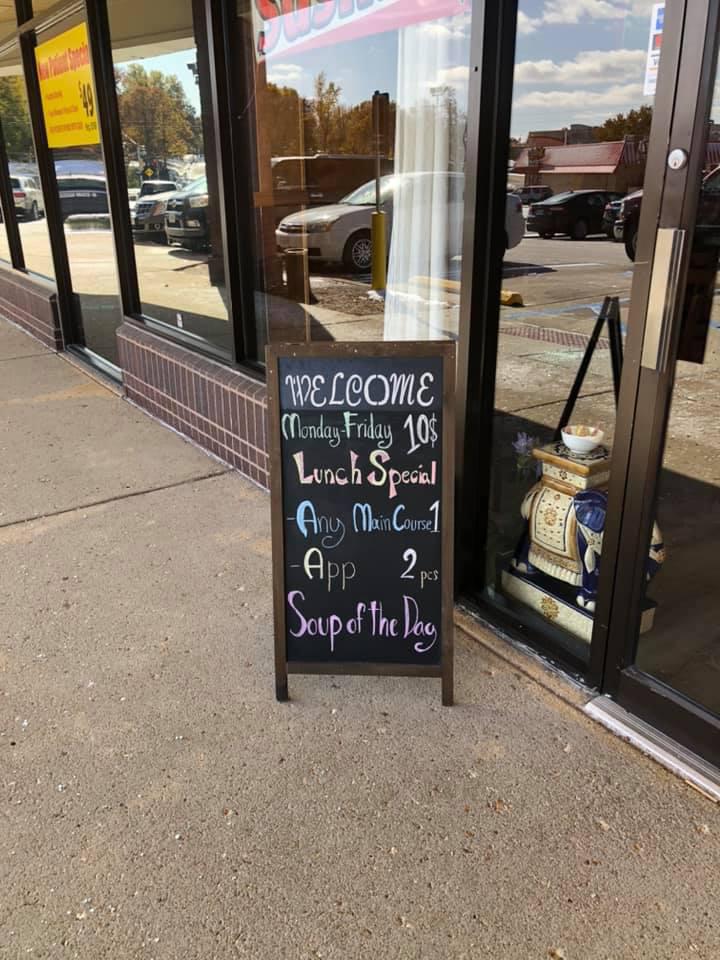 New Patient Special
$49
WELCOME
Monday-Friday 10$
Lunch Special
-Any Main Course 1
-App 2 pcs
Soup of the Day